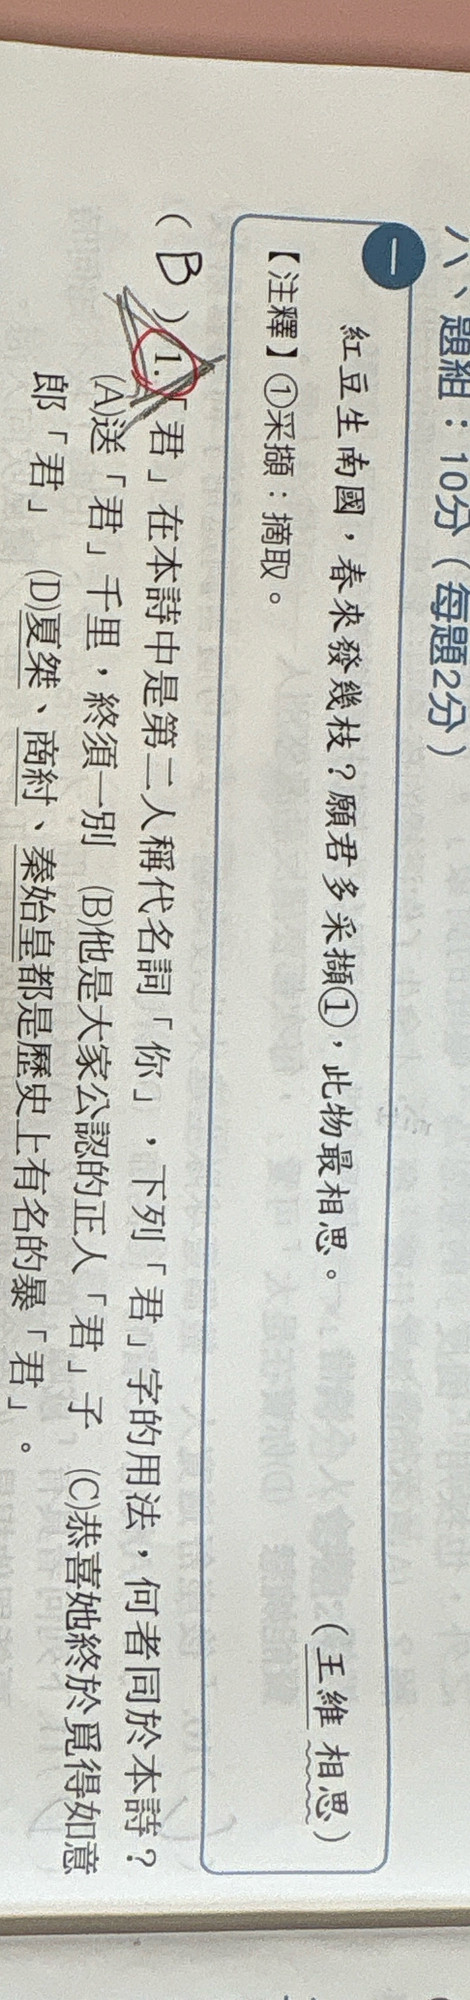 六、題組：10分（每題2分）
一
紅豆生南國，春來發幾枝？願君多采擷①，此物最相思。
（王維 相思）
【注釋】①采擷：摘取。
（B）1.「君」在本詩中是第二人稱代名詞「你」，下列「君」字的用法，何者同於本詩？
(A)送「君」千里，終須一別　(B)他是大家公認的正人「君」子　(C)恭喜她終於覓得如意
郎「君」　(D)夏桀、商紂、秦始皇都是歷史上有名的暴「君」。